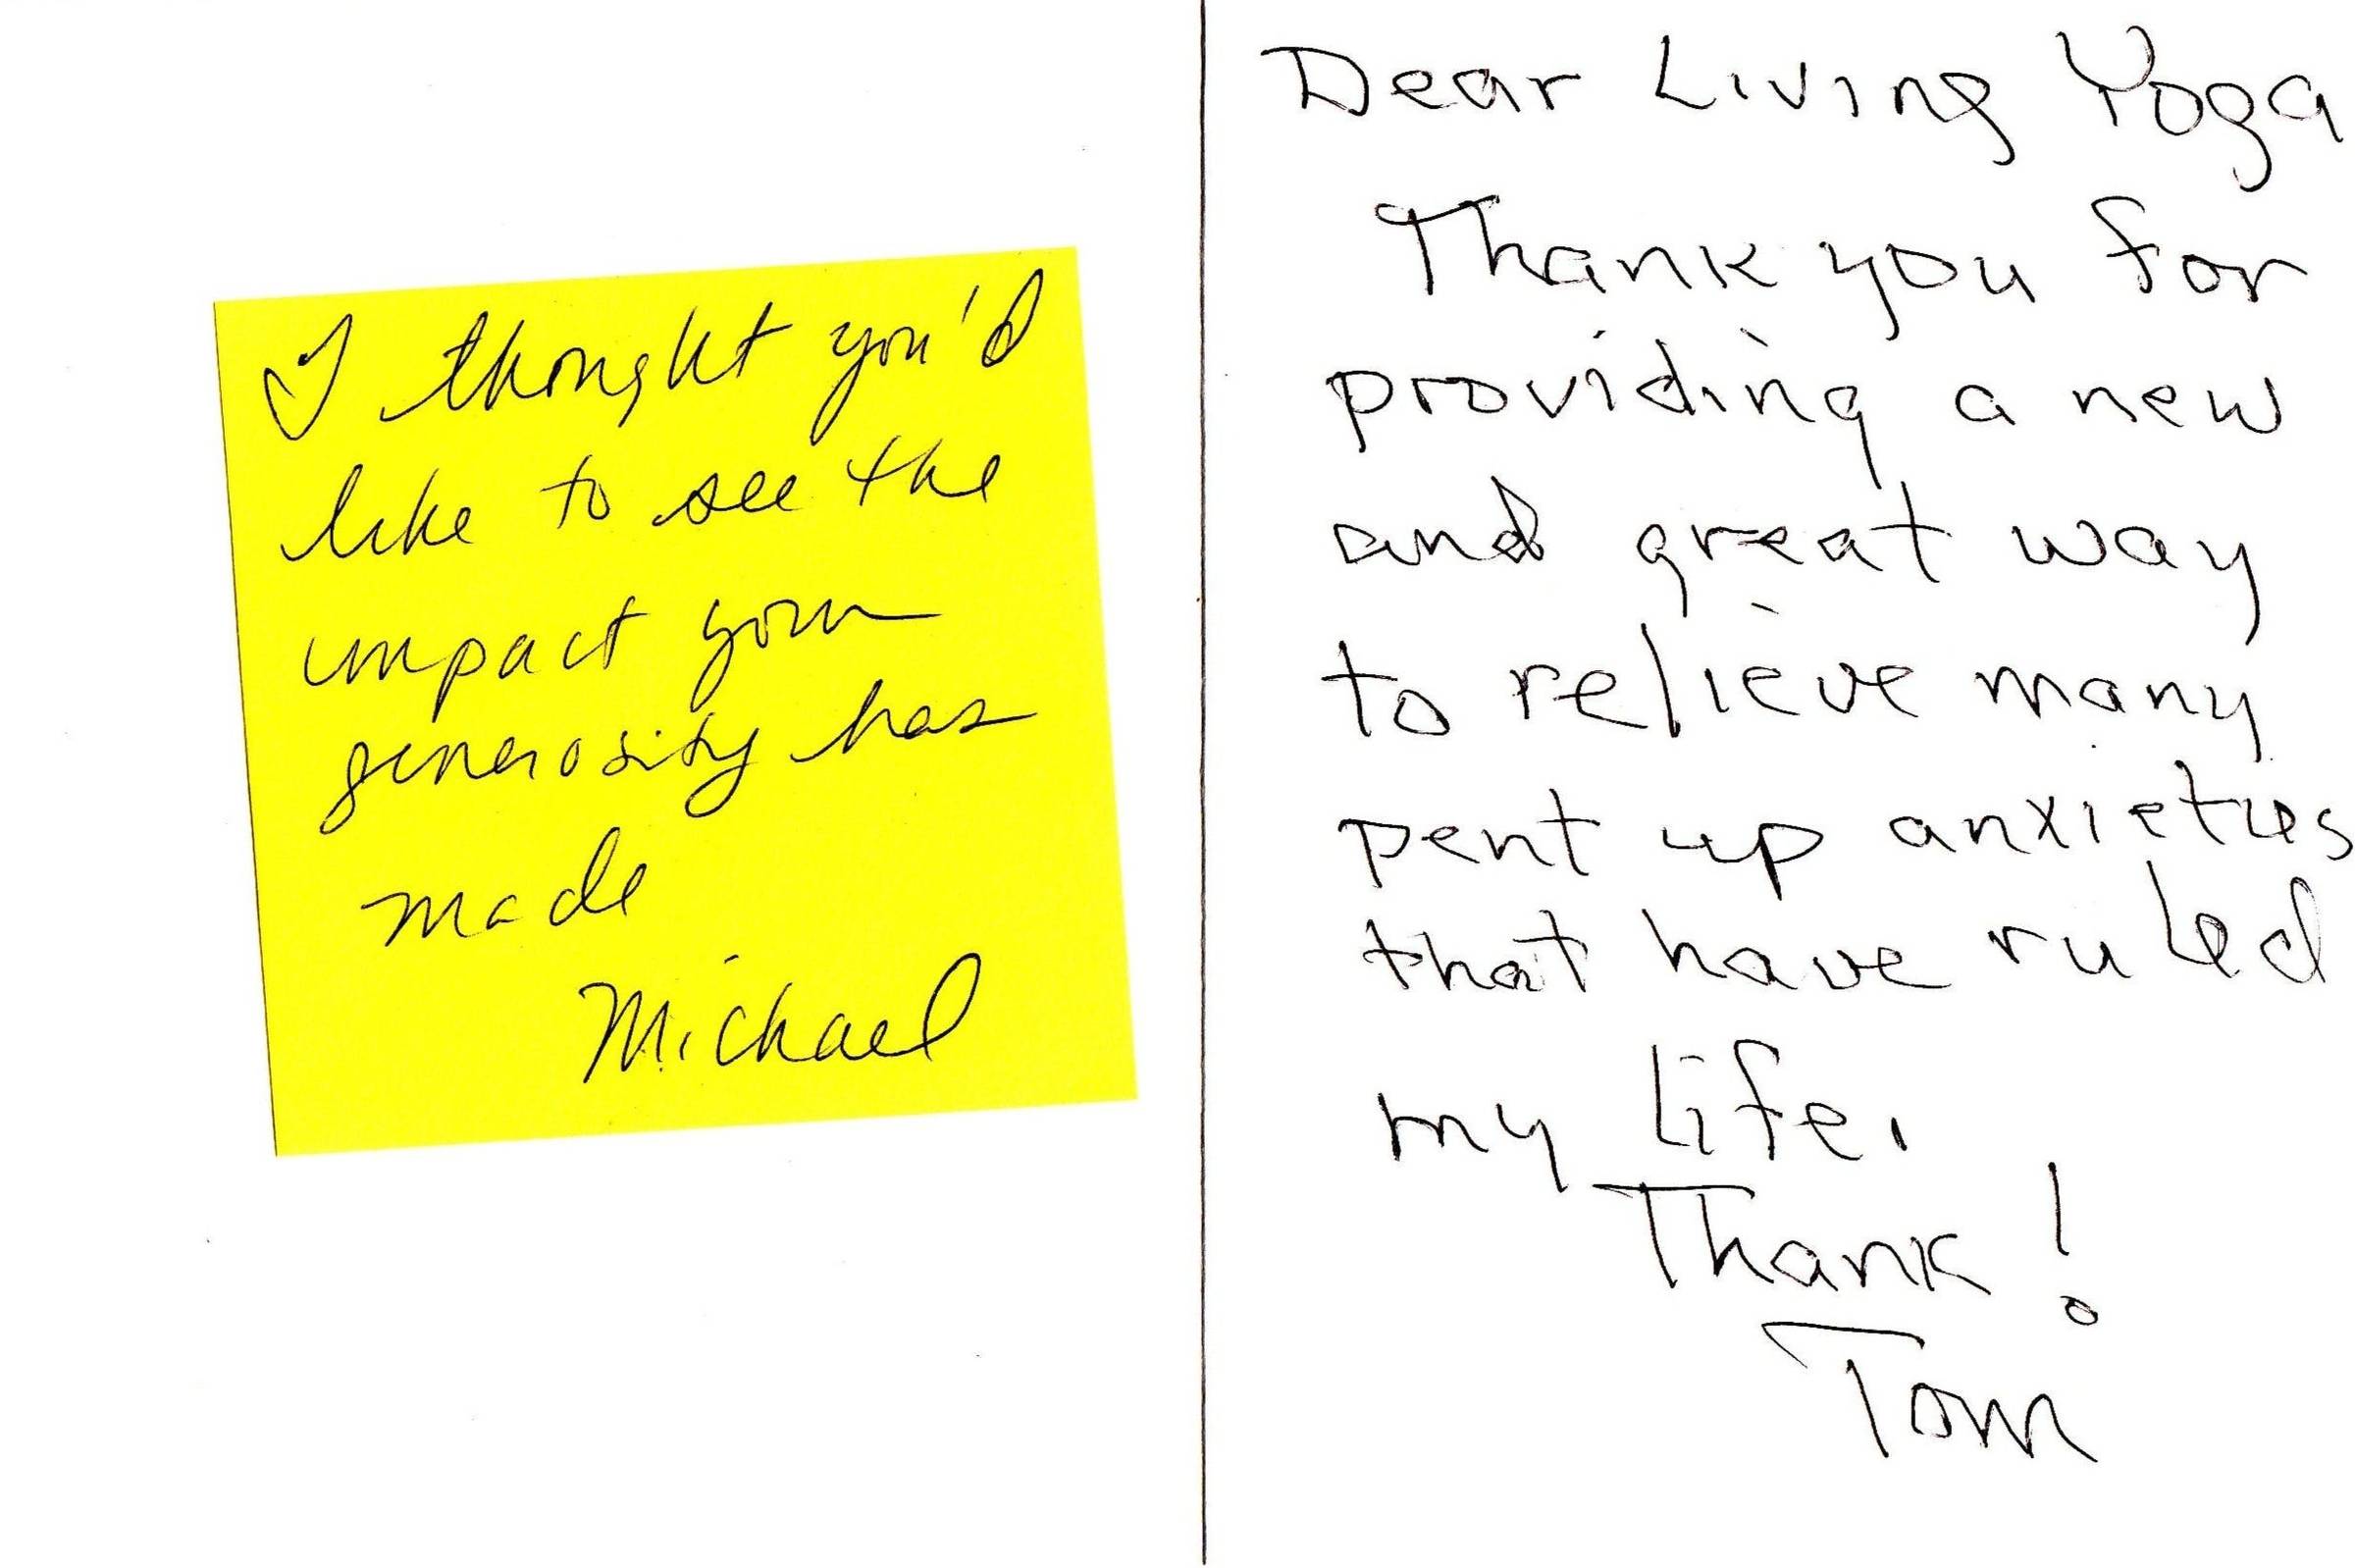 I thought you'd
like to see the
impact your
generosity has
made
Michael
Dear Living Yoga
Thank you for
providing a new
and great way
to relieve many
pent up anxieties
that have ruled
my Life.
Thank!
Tom